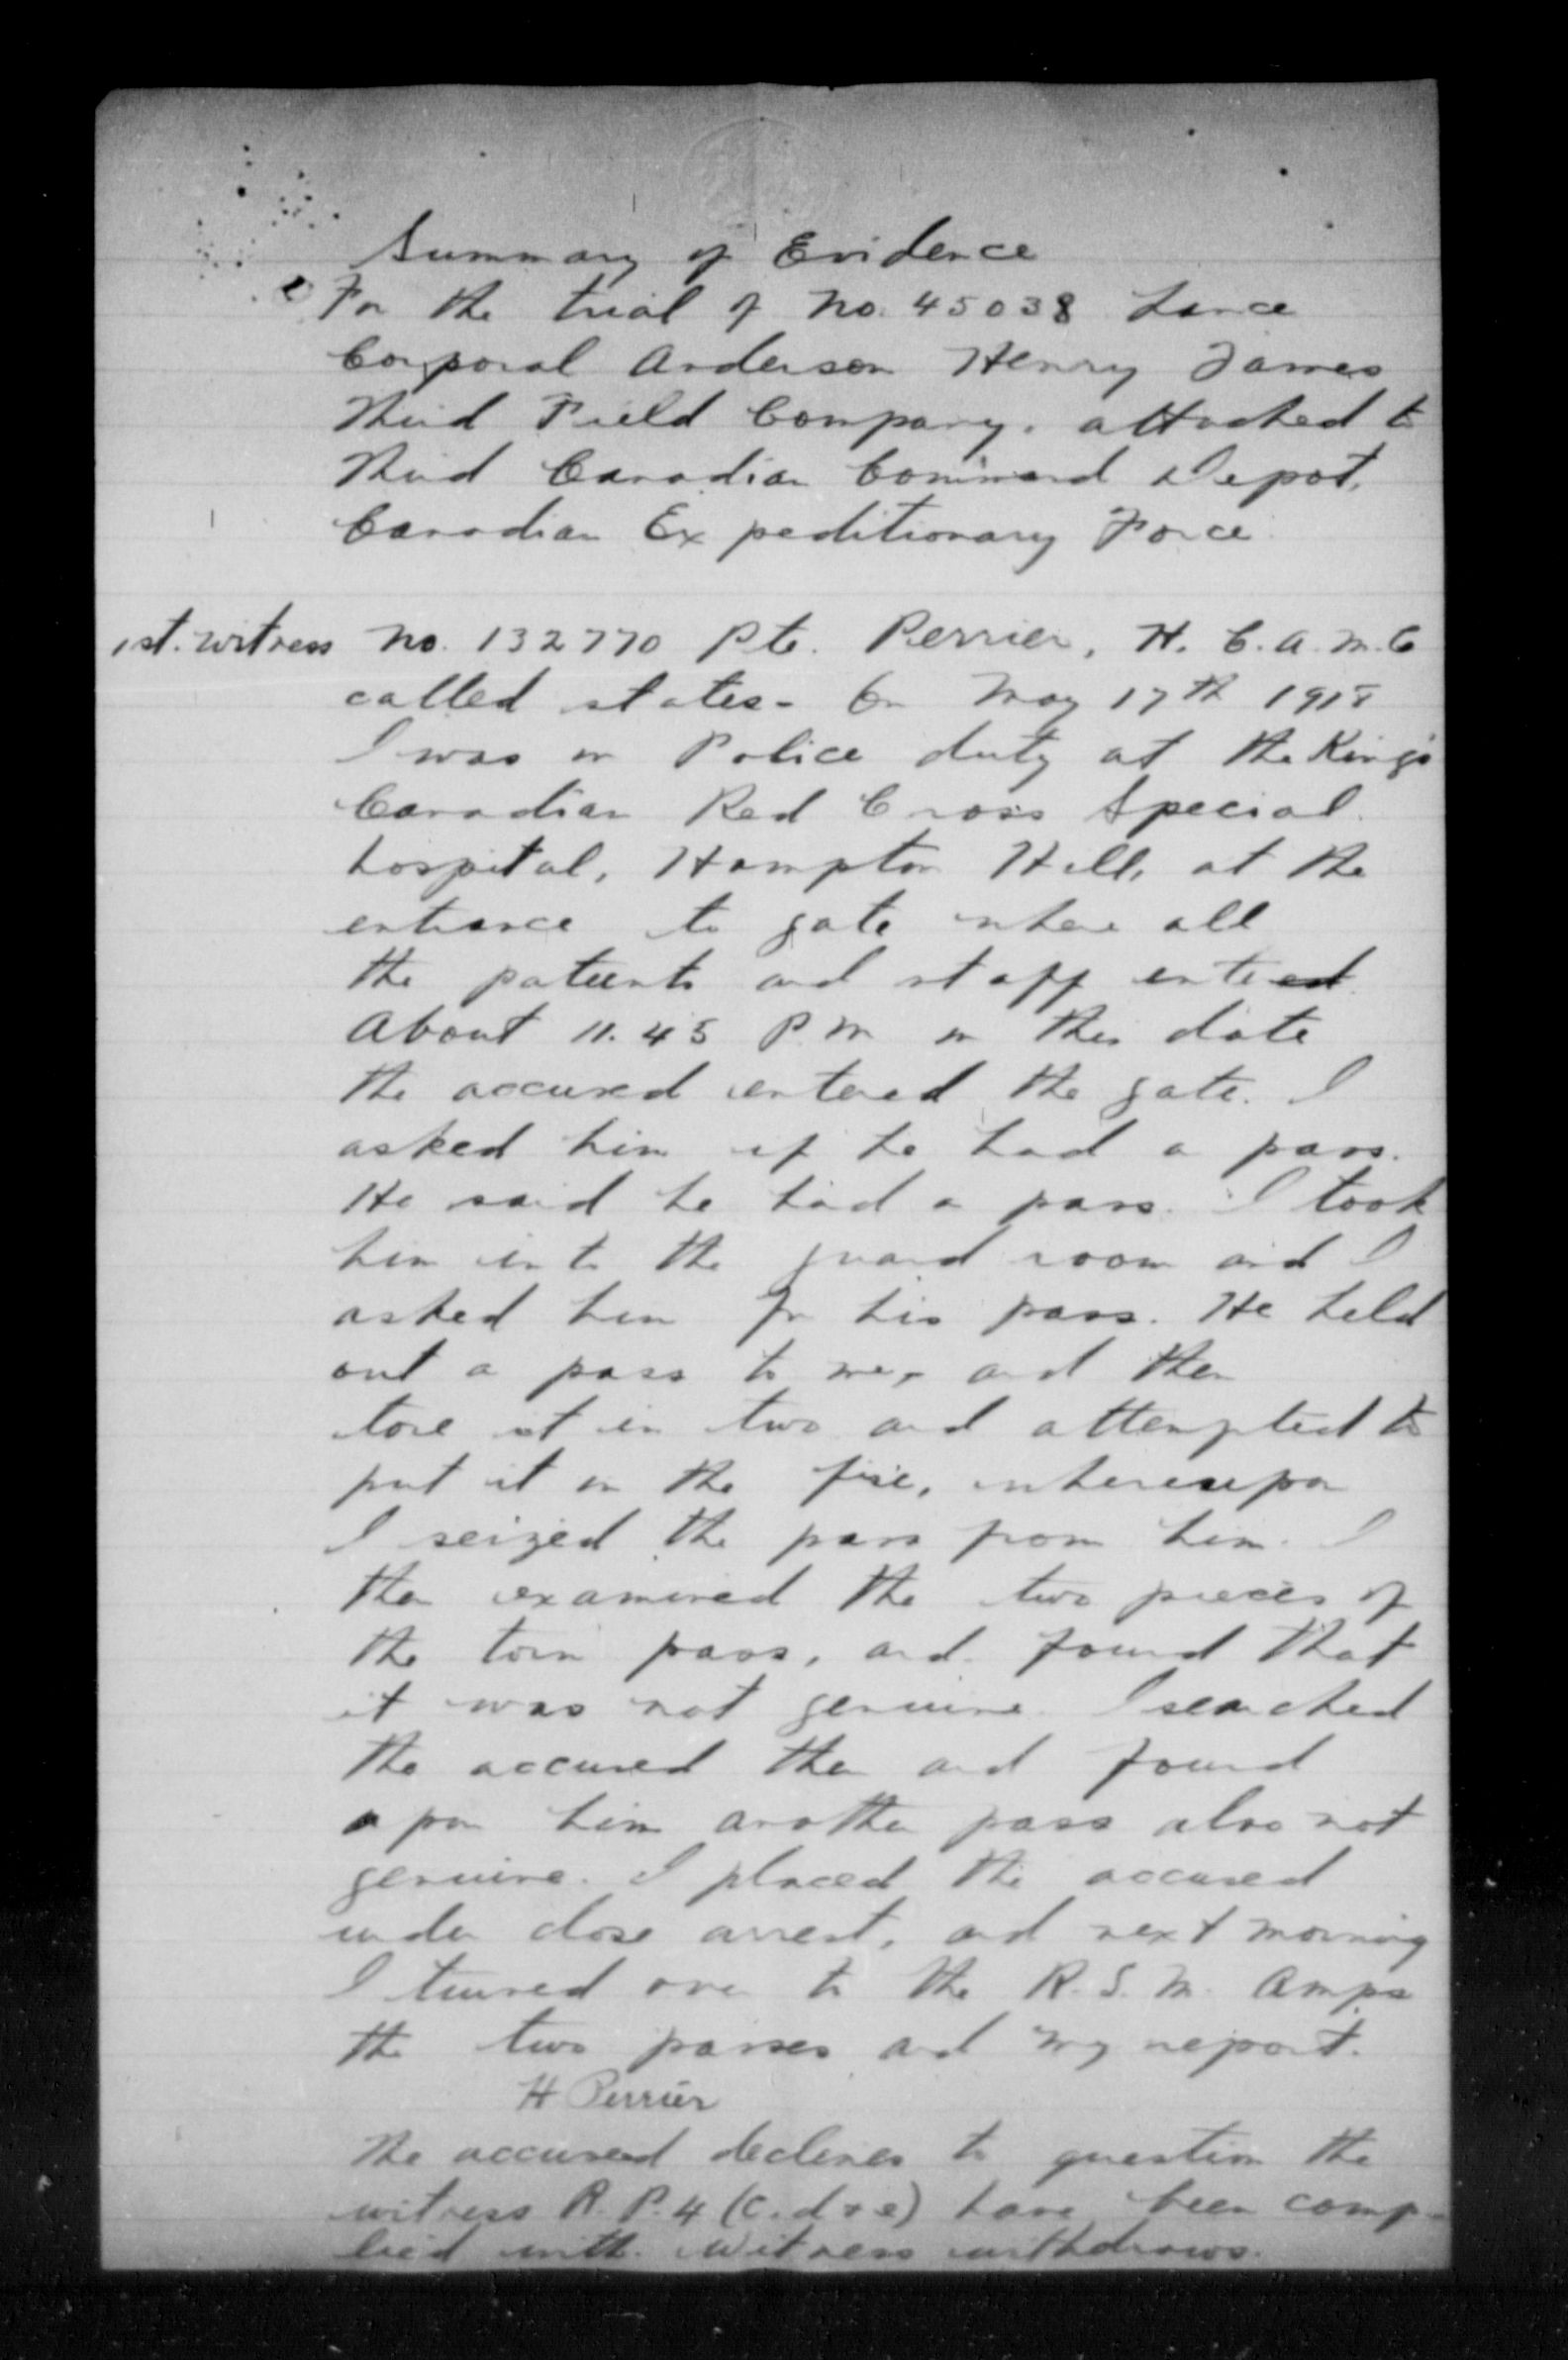 Summary of Evidence
For the trial of No. 45038 Lance
Corporal Anderson Henry James
Third Field Company. attached to
Third Canadian Command Depot,
Canadian Expeditionary Force
1st. Witness No. 132770 Pte. Perrier, H. C.A.M.C
called states - On May 17th 1918
I was on Police duty at the King's
Canadian Red Cross Special
hospital, Hampton Hill, at the
entrance to gate where all
the patients and staff entered
About 11.45 P.M on this date
the accused entered the gate. I
asked him if he had a pass.
He said he had a pass. I took
him into the guard room and I
asked him for his pass. He held
out a pass to me, and then
tore it in two and attempted to
put it in the fire, whereupon
I seized the pass from him. I
then examined the two pieces of
the torn pass, and found that
it was not genuine. I searched
the accused then and found
upon him another pass also not
genuine. I placed the accused
under close arrest, and next morning
I turned over to the R.S.M.
the two passes and my report.
H Perrier
The accused declines to question the
witness R.P.4 (c.d & e) have been comp-
lied with. Witness withdraws.